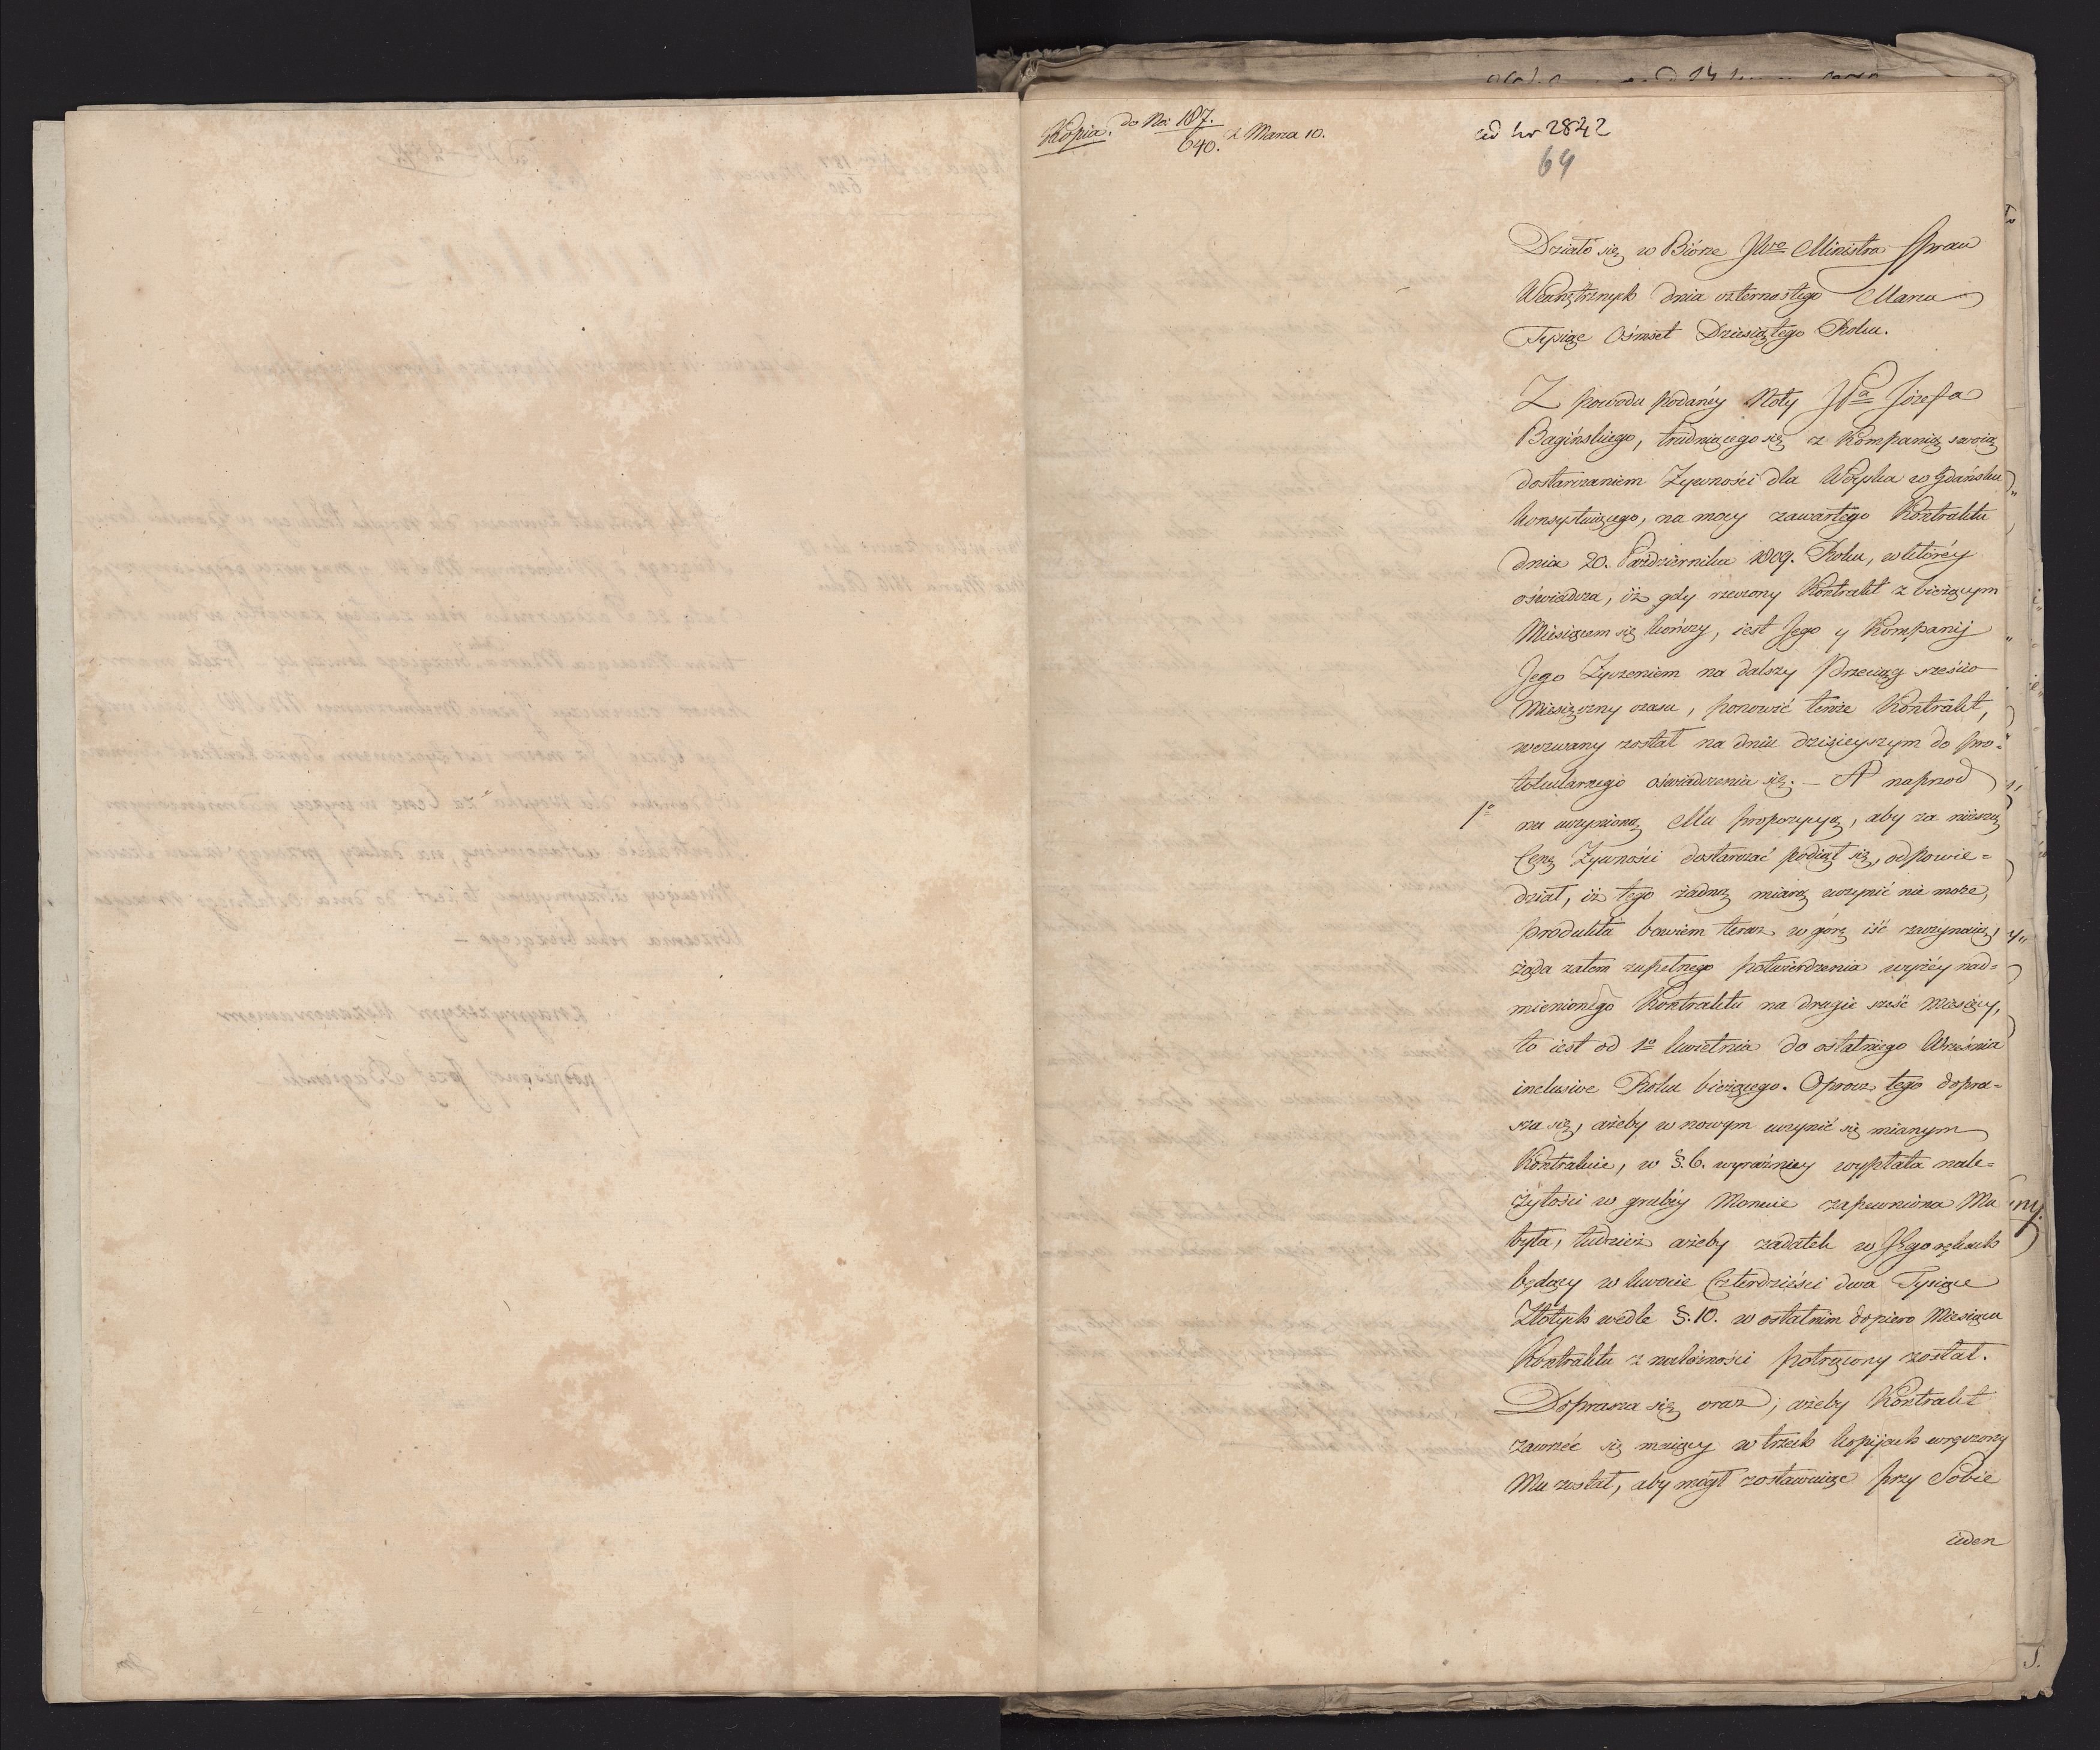 Kopia. do No: 187./640. z Marca 10.
ad Nr 2842
64
Działo się w Biórze JWgo Ministra Spraw
Wewnętrznych dnia czternastego Marca
Tysiąc Ośmset Dziesiątego Roku.
Z powodu podanéy Noty JPa Józefa
Bagińskiego, trudniącego się z Kompanią swoią
dostarczaniem Żywności dla Woyska w Gdańsku
konsystuiącego, na mocy zawartego Kontraktu
dnia 20. Października 1809. Roku, w któréy
oświadcza, iż gdy rzeczony Kontrakt z bieżącym
Miesiącem się kończy, iest Jego y Kompanij
Jego Życzeniem na dalszy Przeciąg sześcio
Miesięczny czasu, ponowić tenże Kontrakt,
wezwany został na dniu dzisieyszym do pro=
tokularnego oświadczenia się. — A naprzod
1o na uczynioną Mu propozycyą, aby za niższą
Cenę Żywności dostarczać podiął się, odpowie=
dział, iż tego żadną miarą uczynić nie może,
produkta bowiem teraz w górę iść zaczynaią,
żąda zatem zupełnego potwierdzenia wyżéy nad=
mienionego Kontraktu na drugie sześć Miesięcy,
to iest od 1o kwietnia do ostatniego Września
inclusive Roku bieżącego. Oprocz tego dopra=
sza się, ażeby w nowym uczynić się mianym
Kontrakcie, w §. 6. wyraźniey wypłata nale=
żytości w grubéy Monecie zapewniona Mu
była, tudzież ażeby zadatek w Jego rękach
będący w kwocie Czterdzieści dwa Tysiące
Złotych wedle §. 10. w ostatnim dopiero Miesiącu
Kontraktu z należności potrącony został.
Doprasza się oraz; ażeby Kontrakt
zawrzéc się maiący w trzech kopijach wręczony
Mu został, aby mógł zostawuiąc przy Sobie
ieden